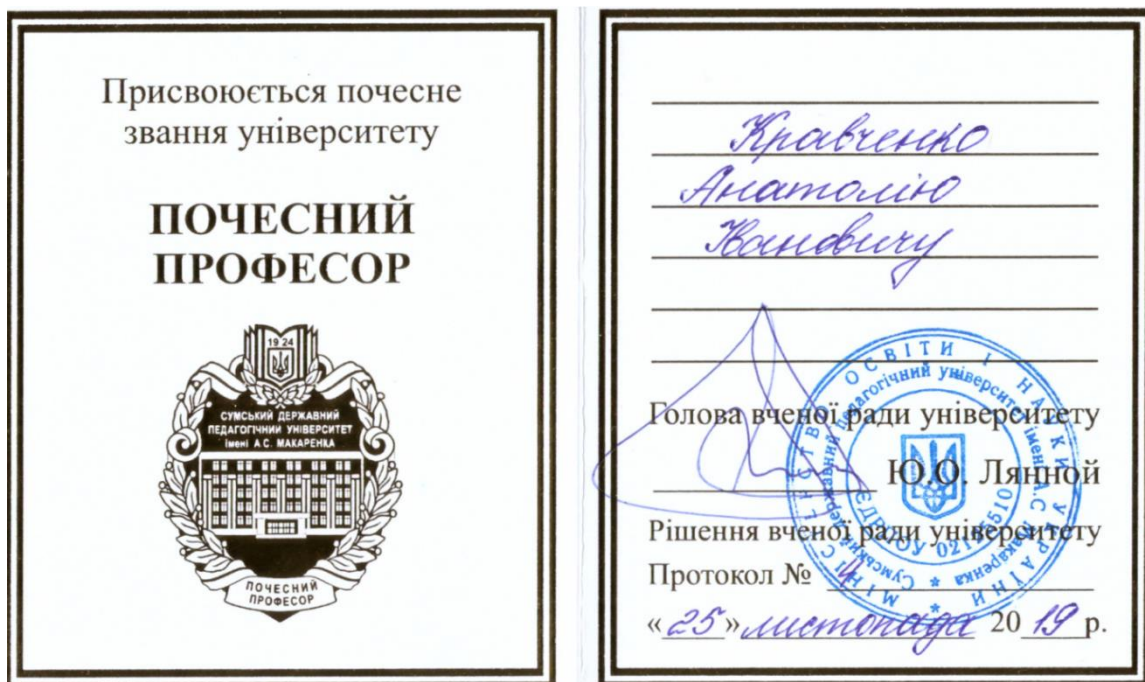 Присвоюється почесне
звання університету
ПОЧЕСНИЙ
ПРОФЕСОР
19 24
СУМСЬКИЙ ДЕРЖАВНИЙ
ПЕДАГОГІЧНИЙ УНІВЕРСИТЕТ
імені А.С. МАКАРЕНКА
ПОЧЕСНИЙ
ПРОФЕСОР
Кравченко
Анатолію
Івановичу
Голова вченої ради університету
Ю.О. Лянной
Рішення вченої ради університету
Протокол № 4
«25» листопада 2019 р.
МІНІСТЕРСТВО ОСВІТИ І НАУКИ УКРАЇНИ
Сумський державний педагогічний університет імені А.С. Макаренка
ЄДРПОУ